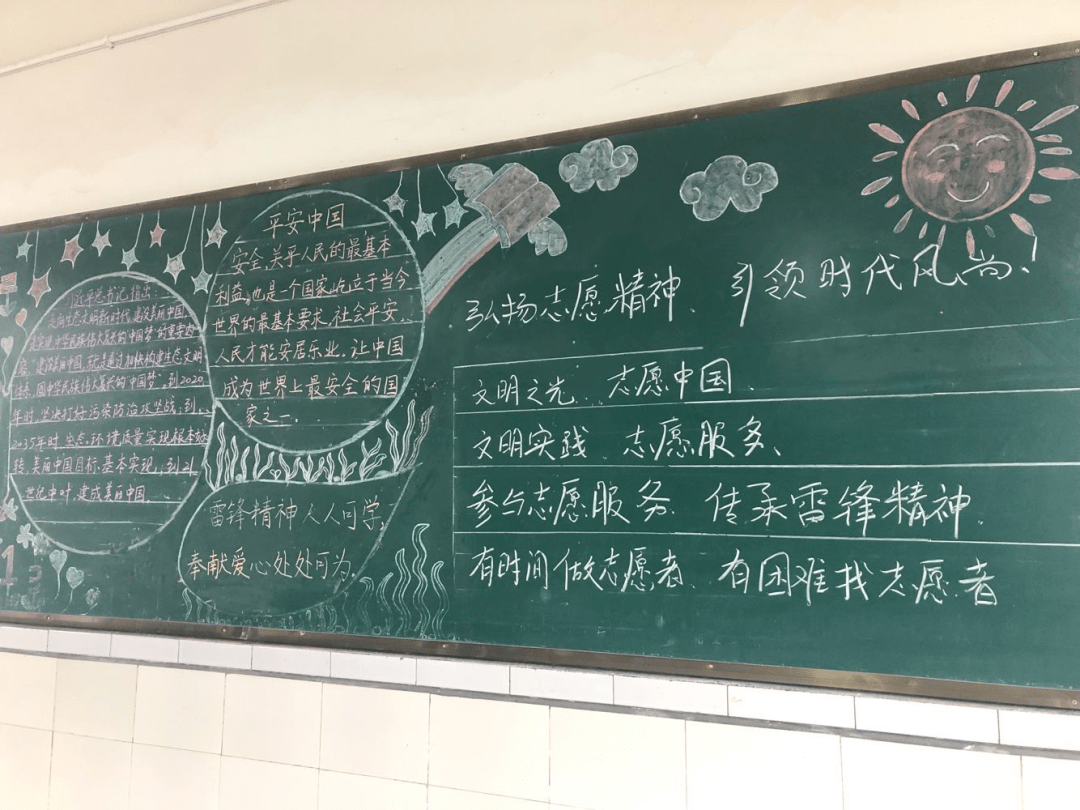 习近平总书记指出:
走向生态文明新时代,建设美丽中国,
是实现中华民族伟大复兴的中国梦的重要内
容。建设美丽中国,就是通过加快构建生态文明
体系,圆中华民族伟大复兴的"中国梦"。到2020
年时,坚决打好污染防治攻坚战;到
2035年时,生态环境质量实现根本好
转,美丽中国目标基本实现;到21
世纪中叶,建成美丽中国
平安中国
安全,关乎人民的最基本
利益,也是一个国家屹立于当今
世界的最基本要求。社会平安,
人民才能安居乐业。让中国
成为世界上最安全的国
家之一。
雷锋精神人人可学,
奉献爱心处处可为,
弘扬志愿精神、引领时代风尚!
文明之光、志愿中国、
文明实践、志愿服务、
参与志愿服务、传承雷锋精神、
有时间做志愿者、有困难找志愿者